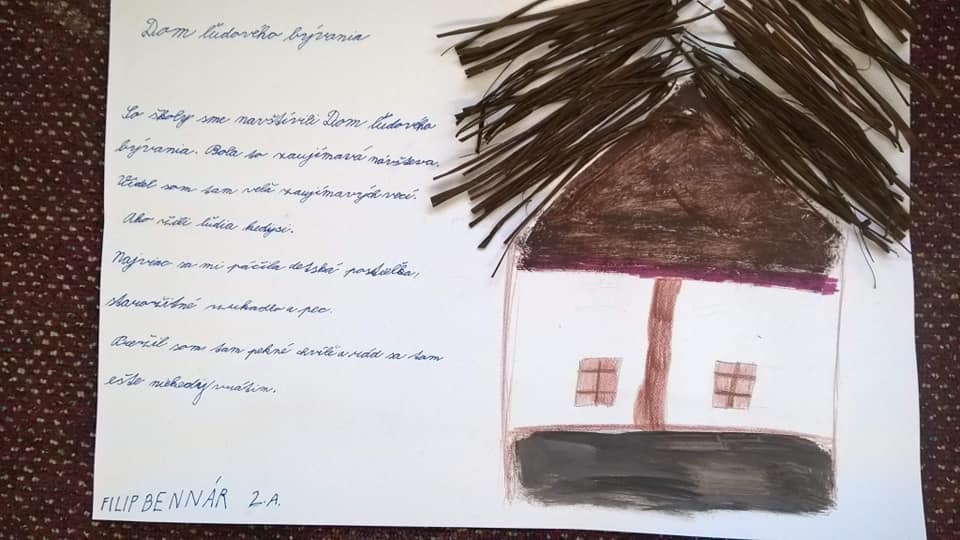 Dom ľudového bývania
So školy sme navštívili Dom ľudového
bývania. Bola to zaujímavá návšteva.
Videl som tam veľa zaujímavých vecí.
Ako žili ľudia kedysi.
Najviac sa mi páčila detská postieľka,
starožitné zrkadlo a pec.
Prežil som tam pekné chvíle a rád sa tam
ešte niekedy vrátim.
FILIP BENNÁR 2.A.